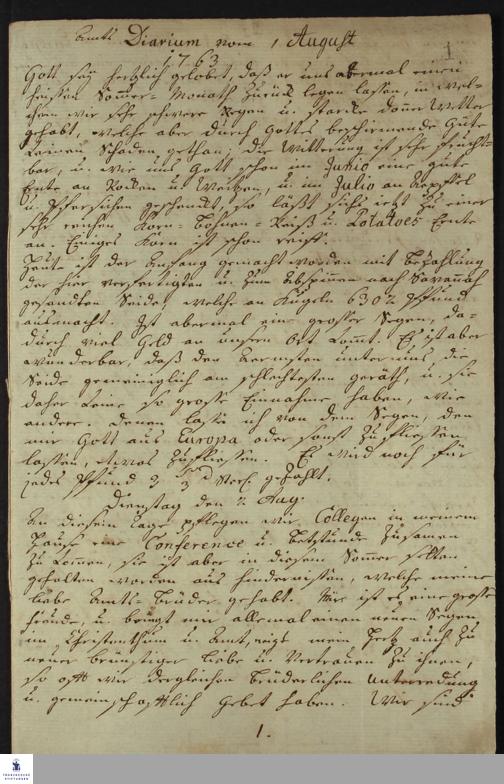 Amts Diarium vom 1 August
1763.
1
Gott sey hertzlich gelobet, daß er uns abermal einen
heissen Sommer-Monath zurück legen lassen, in wel-
chem wir sehr schwere Regen u. starcke Donner Wetter
gehabt, welche aber durch Gottes beschirmende Güte
keinen Schaden gethan; die Witterung ist sehr frucht-
bar, u. wie uns Gott schon im Junio eine gute
Ernte an Rocken u. Weitzen, u. im Julio an Aepffel
u. Pfersichen geschenckt, so läßt sichs ietzt zu einer
sehr reichen Korn- Bohnen- Reiß u. Potatoes Ernte
an. Einiges Korn ist schon reiff.
Heute ist der Anfang gemacht worden mit Bezahlung
der hier verfertigten u. zum Abspinnen nach Savannah
gesandten Seide, welche an Kugeln 6302 Pfund
ausmacht. Ist abermal ein grosser Segen, da-
durch viel Geld an unsern Ort komt. Es ist aber
wunderbar, daß den Aermsten unter uns die
Seide gemeiniglich am schlechtesten geräth, u. sie
daher keine so grosse Einnahme haben, wie
andere; denen lasse ich von dem Segen, den
mir Gott aus Europa oder sonst zufliessen
lassen, etwas zufliessen. Es wird noch für
jedes Pfund 2 3 d Sterl. gezahlt.
Dienstag den 2 Aug.
An diesem Tage pflegen wir Collegen in meinem
Hause eine Conference u. Betstunde zusamen
zu kommen, sie ist aber in diesem Sommer selten
gehalten worden aus Hindernissen, welche meine
liebe Amts-Brüder gehabt. Mir ist es eine grosse
Freude, u. bringt mir allemal einen neuen Segen
im Christenthum u. Amt, neigt mein Hertz auch zu
neuer brünstiger Liebe u. Vertrauen zu ihnen,
so offt wir dergleichen brüderlichen Unterredung
u. gemeinschafftlich Gebet haben. Wir sind
1.
FRANCKESCHE STIFTUNGEN